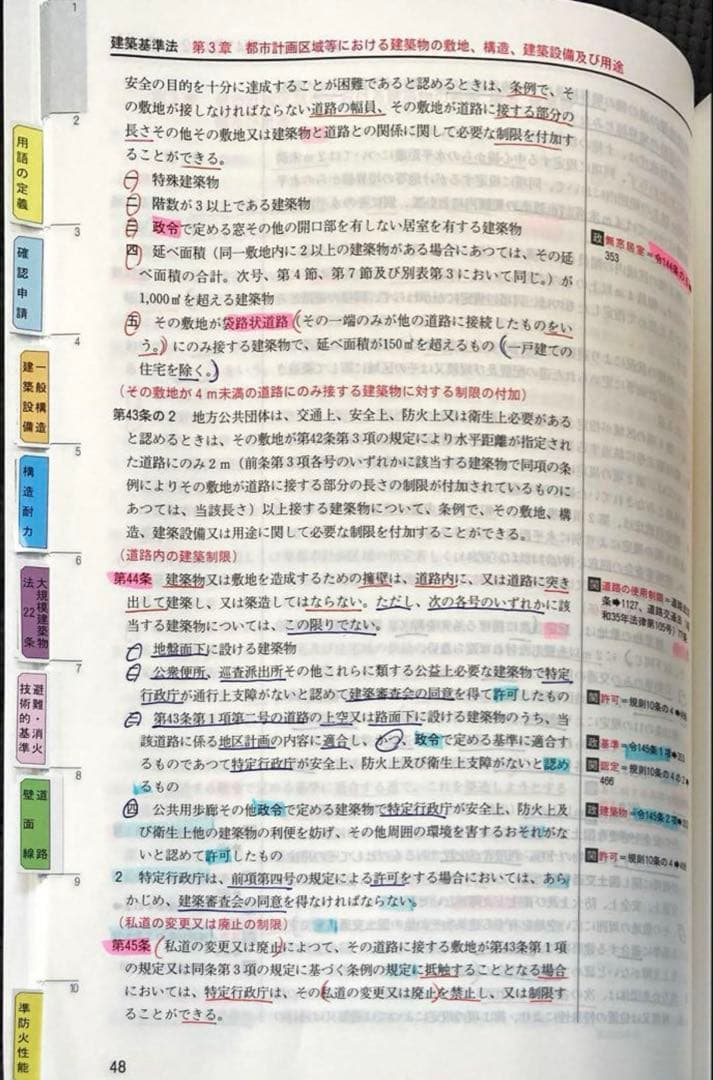 建築基準法 第3章 都市計画区域等における建築物の敷地、構造、建築設備及び用途
安全の目的を十分に達成することが困難であると認めるときは、条例で、そ
の敷地が接しなければならない道路の幅員、その敷地が道路に接する部分の
長さその他その敷地又は建築物と道路との関係に関して必要な制限を付加す
ることができる。
一 特殊建築物
二 階数が3以上である建築物
三 政令で定める窓その他の開口部を有しない居室を有する建築物
四 延べ面積(同一敷地内に2以上の建築物がある場合にあつては、その延
べ面積の合計。次号、第4節、第7節及び別表第3において同じ。)が
1,000㎡を超える建築物
五 その敷地が袋路状道路(その一端のみが他の道路に接続したものをい
う。)にのみ接する建築物で、延べ面積が150㎡を超えるもの(一戸建ての
住宅を除く。)
(その敷地が4m未満の道路にのみ接する建築物に対する制限の付加)
第43条の2 地方公共団体は、交通上、安全上、防火上又は衛生上必要がある
と認めるときは、その敷地が第42条第3項の規定により水平距離が指定され
た道路にのみ2m(前条第3項各号のいずれかに該当する建築物で同項の条
例によりその敷地が道路に接する部分の長さの制限が付加されているものに
あつては、当該長さ)以上接する建築物について、条例で、その敷地、構
造、建築設備又は用途に関して必要な制限を付加することができる。
(道路内の建築制限)
第44条 建築物又は敷地を造成するための擁壁は、道路内に、又は道路に突き
出して建築し、又は築造してはならない。ただし、次の各号のいずれかに該
当する建築物については、この限りでない。
一 地盤面下に設ける建築物
二 公衆便所、巡査派出所その他これらに類する公益上必要な建築物で特定
行政庁が通行上支障がないと認めて建築審査会の同意を得て許可したもの
三 第43条第1項第二号の道路の上空又は路面下に設ける建築物のうち、当
該道路に係る地区計画の内容に適合し、かつ、政令で定める基準に適合す
るものであつて特定行政庁が安全上、防火上及び衛生上支障がないと認め
るもの
四 公共用歩廊その他政令で定める建築物で特定行政庁が安全上、防火上及
び衛生上他の建築物の利便を妨げ、その他周囲の環境を害するおそれがな
いと認めて許可したもの
2 特定行政庁は、前項第四号の規定による許可をする場合においては、あら
かじめ、建築審査会の同意を得なければならない。
(私道の変更又は廃止の制限)
第45条 私道の変更又は廃止によつて、その道路に接する敷地が第43条第1項
の規定又は同条第3項の規定に基づく条例の規定に抵触することとなる場合
においては、特定行政庁は、その私道の変更又は廃止を禁止し、又は制限す
ることができる。
48
政 無窓居室=令144条の
353
関 道路の使用制限=道路
条➡1127、道路交通法
和35年法律第105号)77
関 許可=規則10条の4➡
政 基準=令145条1項➡353
関 認定=規則10条の4の2➡
466
政 建築物=令145条2項➡
関 許可=規則10条の4➡
1
2
用語の定義
3
確認申請
4
一般構造
建築設備
5
構造耐力
6
大規模建築物
法22条
7
避難・消火
技術的基準
8
道路
壁面線
9
10
準防火性能